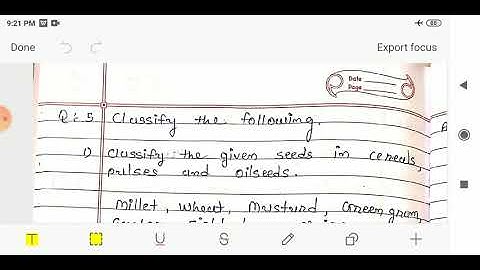 9:21 PM
88
Done
Export focus
Date
Page
Q: 5 Classify the following.
1) Classify the given seeds in cereals,
pulses and oilseeds.
Millet, wheat, Mustard, Green gram,
T
U
S